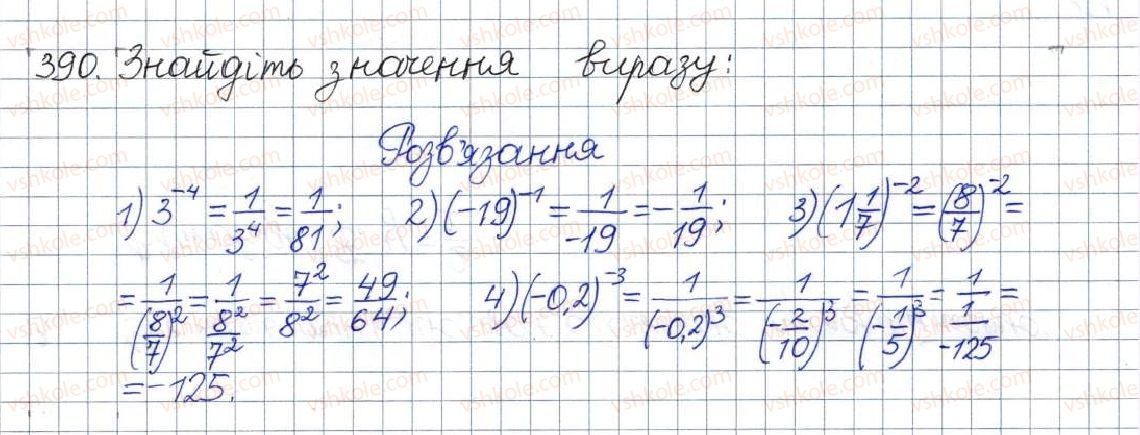 390. Знайдіть значення виразу:
Розв'язання
1) 3^{-4} = \frac{1}{3^4} = \frac{1}{81}; 2) (-19)^{-1} = \frac{1}{-19} = -\frac{1}{19}; 3) (1\frac{1}{7})^{-2} = (\frac{8}{7})^{-2} =
= \frac{1}{(\frac{8}{7})^2} = \frac{1}{\frac{8^2}{7^2}} = \frac{7^2}{8^2} = \frac{49}{64}; 4) (-0,2)^{-3} = \frac{1}{(-0,2)^3} = \frac{1}{(-\frac{2}{10})^3} = \frac{1}{(-\frac{1}{5})^3} = \frac{1}{\frac{1}{-125}} =
= -125.